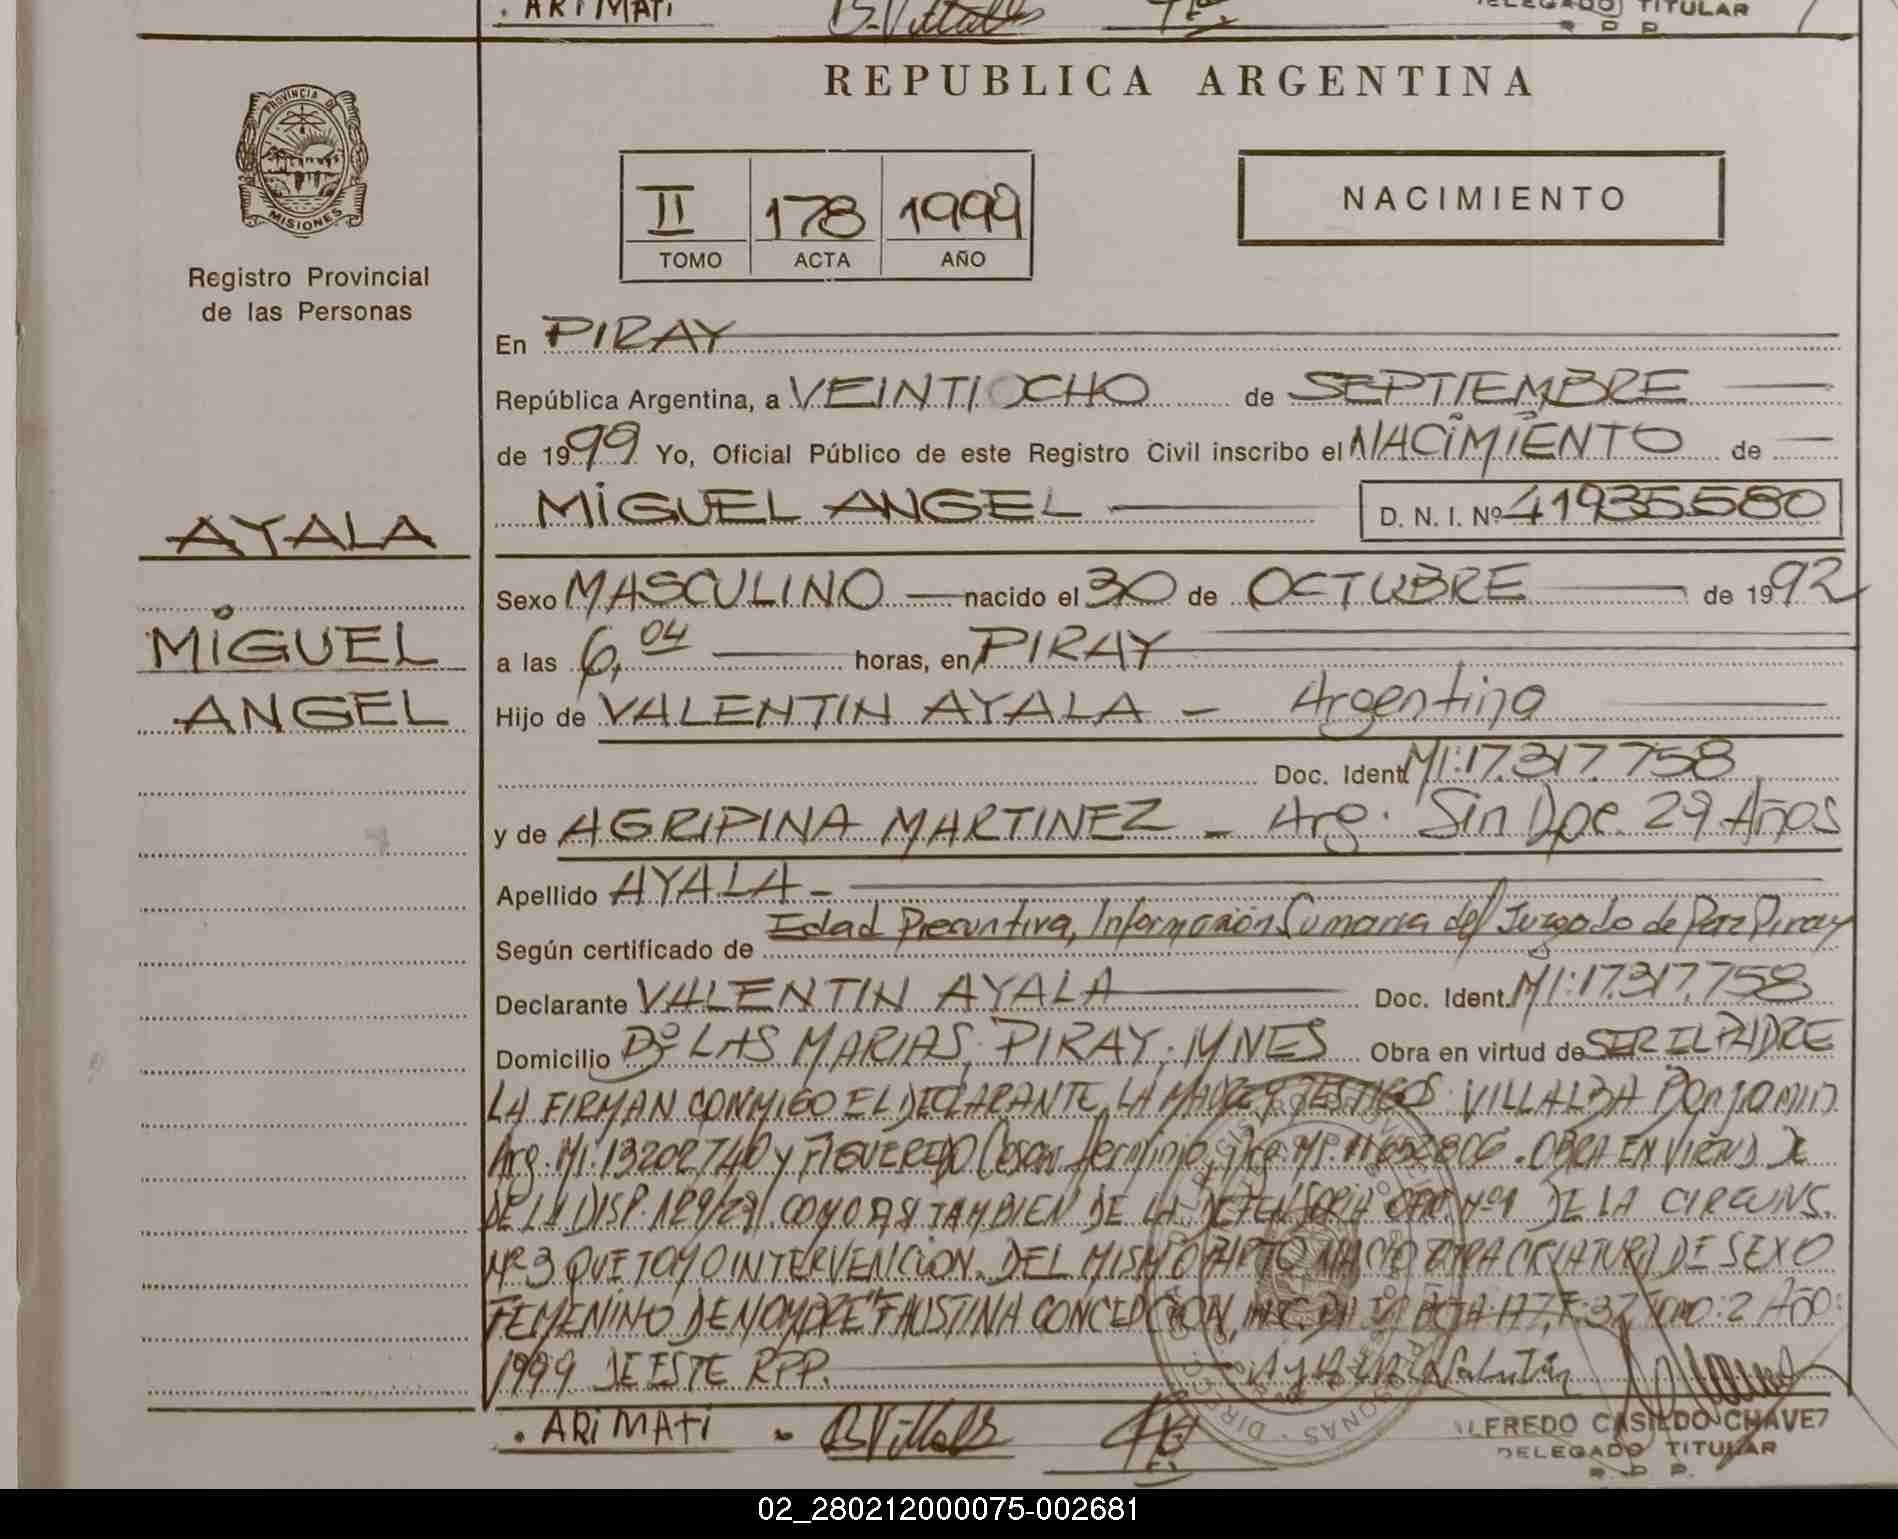 . ARIMATI
DELEGADO TITULAR
R P P
PROVINCIA DE
MISIONES
Registro Provincial
de las Personas
REPUBLICA ARGENTINA
II 178 1999
TOMO ACTA AÑO
NACIMIENTO
En PIRAY
República Argentina, a VEINTIOCHO de SEPTIEMBRE
de 1999 Yo, Oficial Público de este Registro Civil inscribo el NACIMIENTO de
MIGUEL ANGEL D. N. I. Nº 41935580
AYALA
MIGUEL
ANGEL
Sexo MASCULINO nacido el 30 de OCTUBRE de 1992
a las 6,04 horas, en PIRAY
Hijo de VALENTIN AYALA - Argentino
Doc. Ident. MI:17.317.758
y de AGRIPINA MARTINEZ - Arg. Sin Doc. 29 Años
Apellido AYALA -
Según certificado de Edad Presuntiva, Información Sumaria del Juzgado de Paz Piray
Declarante VALENTIN AYALA Doc. Ident. MI:17.317.758
Domicilio Bº LAS MARIAS, PIRAY. MNES Obra en virtud de SER EL PADRE
LA FIRMAN CONMIGO EL DECLARANTE, LA MADRE Y TESTIGOS: VILLALBA Benjamin
Arg. MI. 13202740 y FIGUEREDO Cesar Arg. MI. 11652806. OBRA EN VIRTUD DE
DE LA DISP. 129/29. COMO ASI TAMBIEN DE LA DEFENSORIA Nº1 DE LA CIRCUNS.
Nº 3 QUE TOMO INTERVENCION. DEL MISMO PARTO NACIO OTRA CRIATURA DE SEXO
FEMENINO DE NOMBRE "FAUSTINA CONCEPCION, ACTA 177, F:32 TOMO:2 AÑO:
1999 DE ESTE RPP.
Ayala Valentin
. ARIMATI - B Villalba
ALFREDO CASILDO CHAVEZ
DELEGADO TITULAR
R. P P.
02_280212000075-002681